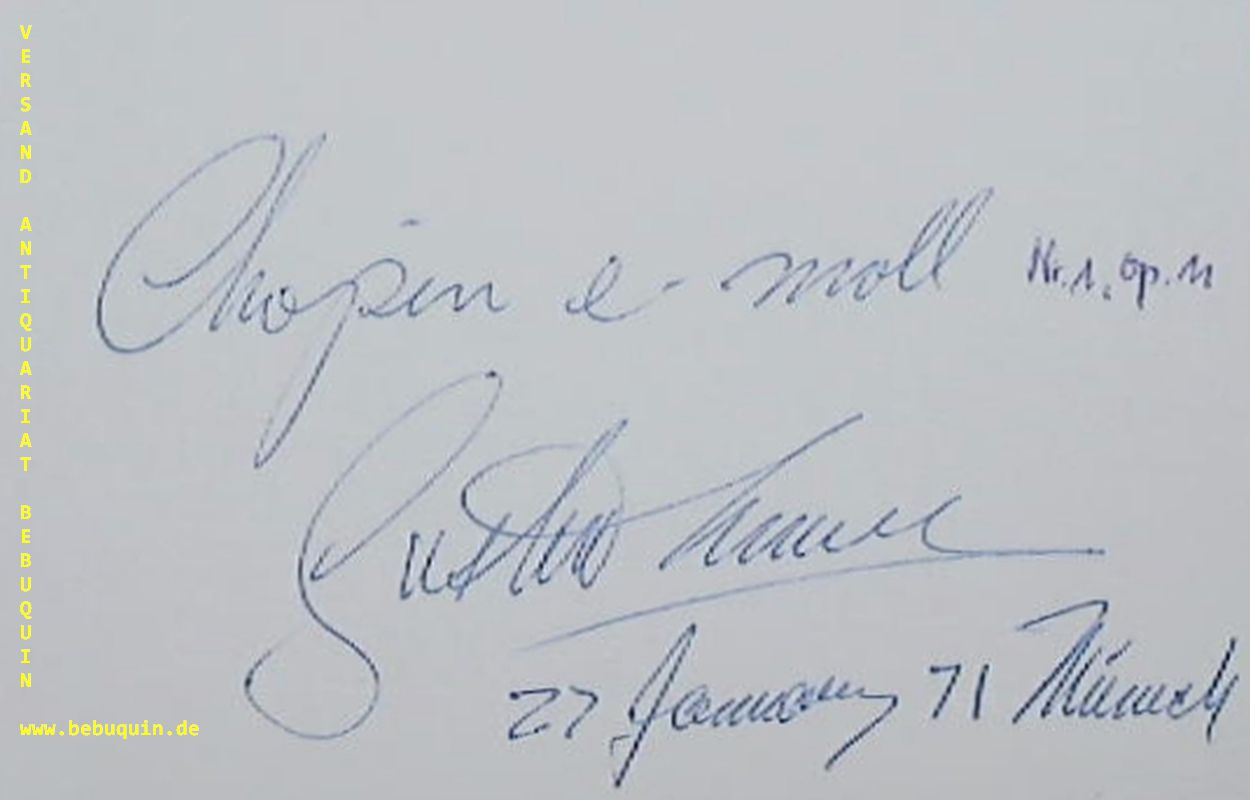 VERSAND ANTIQUARIAT BEBUQUIN
www.bebuquin.de
Chopin e-moll Nr.1, op.11
27 January 71 Münich